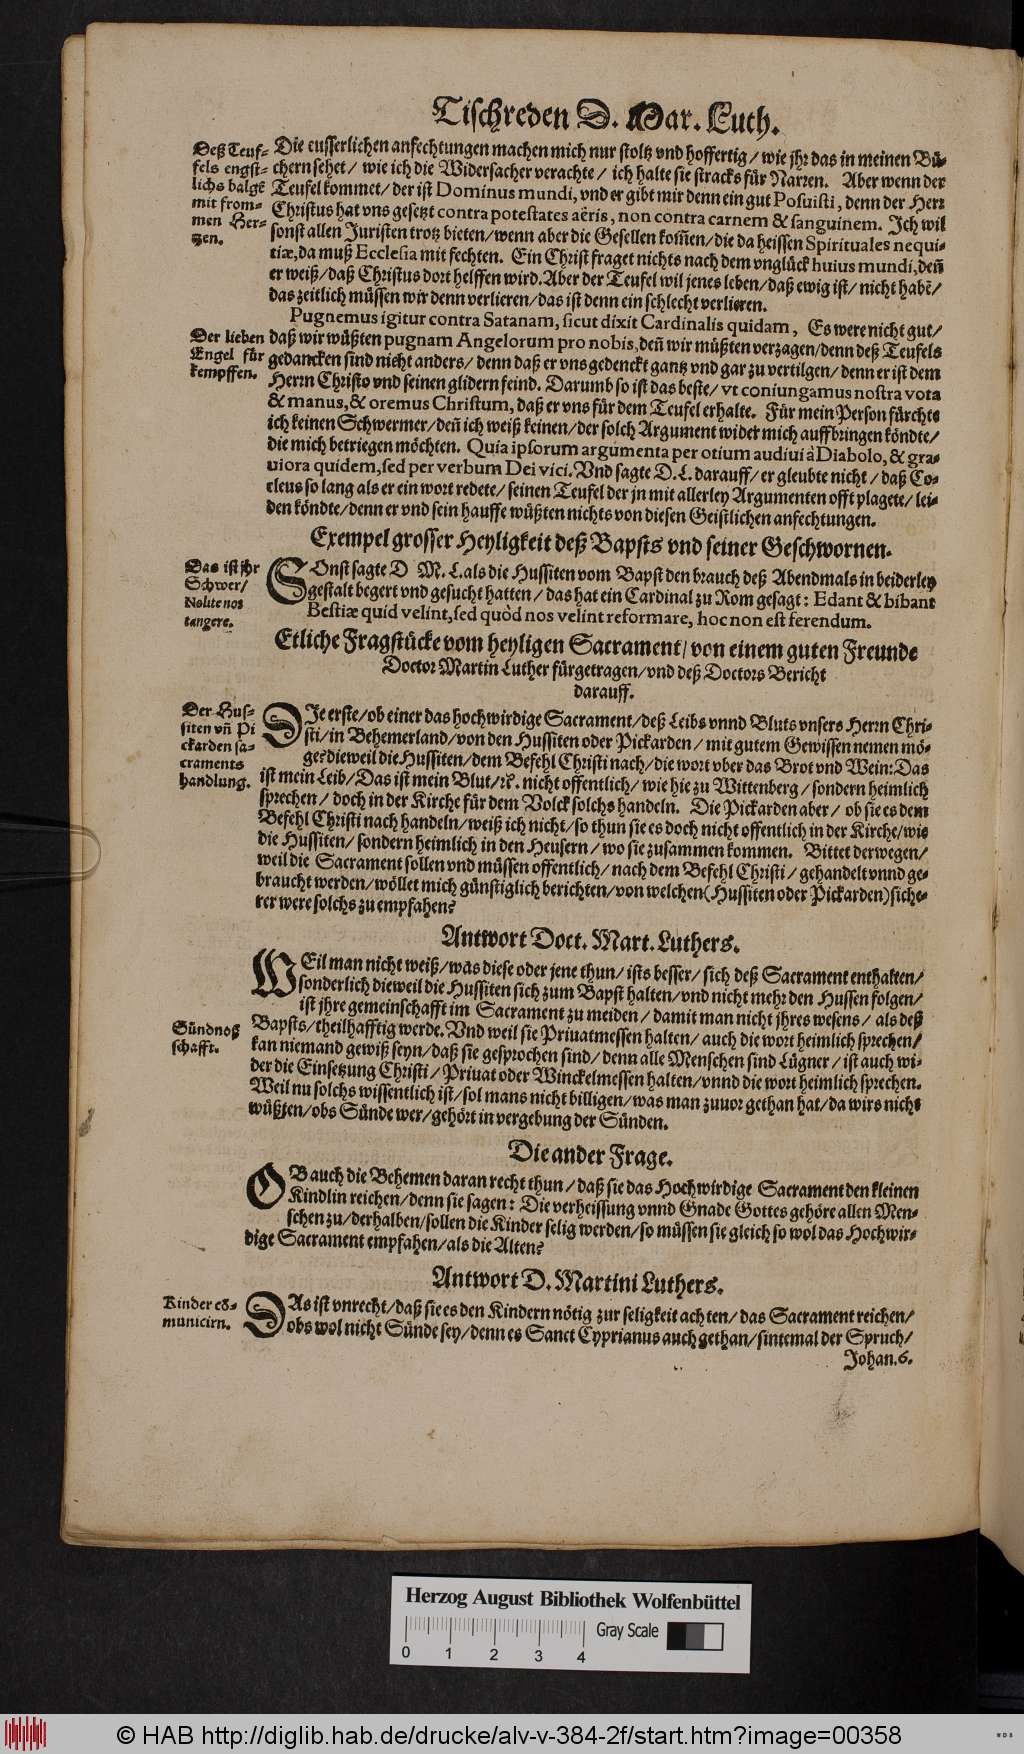 Tischreden D. Mar. Luth.
Deß Teuf-
fels engst-
lichs balgẽ
mit from-
men Her-
tzen.
Die eusserlichen anfechtungen machen mich nur stoltz vnd hoffertig / wie jhr das in meinen Bü-
chern sehet / wie ich die Widersacher verachte / ich halte sie stracks für Narren. Aber wenn der
Teufel kommet / der ist Dominus mundi, vnd er gibt mir denn ein gut Posuisti, denn der Herr
Christus hat vns gesetzt contra potestates aëris, non contra carnem & sanguinem. Ich wil
sonst allen Juristen trotz bieten / wenn aber die Gesellen kom̃en / die da heissen Spirituales nequi-
tiæ, da muß Ecclesia mit fechten. Ein Christ fraget nichts nach dem vnglück huius mundi, den̄
er weiß / daß Christus dort helffen wird. Aber der Teufel wil jenes leben / daß ewig ist / nicht habẽ /
das zeitlich müssen wir denn verlieren / das ist denn ein schlecht verlieren.
Der lieben
Engel für
kempffen.
Pugnemus igitur contra Satanam, sicut dixit Cardinalis quidam, Es were nicht gut /
daß wir wüßten pugnam Angelorum pro nobis, den̄ wir müßten verzagen / denn deß Teufels
gedancken sind nicht anders / denn daß er vns gedenckt gantz vnd gar zu vertilgen / denn er ist dem
Herrn Christo vnd seinen glidern feind. Darumb so ist das beste / vt coniungamus nostra vota
& manus, & oremus Christum, daß er vns für dem Teufel erhalte. Für mein Person fürchte
ich keinen Schwermer / den̄ ich weiß keinen / der solch Argument wider mich auffbringen köndte /
die mich betriegen möchten. Quia ipsorum argumenta per otium audiui à Diabolo, & gra-
uiora quidem, sed per verbum Dei vici. Vnd sagte D. L. darauff / er gleubte nicht / daß Co-
cleus so lang als er ein wort redete / seinen Teufel der jn mit allerley Argumenten offt plagete / lei-
den köndte / denn er vnd sein hauffe wüßten nichts von diesen Geistlichen anfechtungen.
Exempel grosser Heyligkeit deß Bapsts vnd seiner Geschwornen.
Das ist jhr
Schwer /
Nolite nos
tangere.
SOnst sagte D M. L. als die Hussiten vom Bapst den brauch deß Abendmals in beiderley
gestalt begert vnd gesucht hatten / das hat ein Cardinal zu Rom gesagt: Edant & bibant
Bestiæ quid velint, sed quòd nos velint reformare, hoc non est ferendum.
Etliche Fragstücke vom heyligen Sacrament / von einem guten Freunde
Doctor Martin Luther fürgetragen / vnd deß Doctors Bericht
darauff.
Der Hus-
siten vn̄ Pi
ckarden sa-
craments
handlung.
DIe erste / ob einer das hochwirdige Sacrament / deß Leibs vnnd Bluts vnsers Herrn Chri-
sti / in Behemerland / von den Hussiten oder Pickarden / mit gutem Gewissen nemen mö-
ge? dieweil die Hussiten / dem Befehl Christi nach / die wort vber das Brot vnd Wein: Das
ist mein Leib / Das ist mein Blut / ꝛc. nicht offentlich / wie hie zu Wittenberg / sondern heimlich
sprechen / doch in der Kirche für dem Volck solchs handeln. Die Pickarden aber / ob sie es dem
Befehl Christi nach handeln / weiß ich nicht / so thun sie es doch nicht offentlich in der Kirche / wie
die Hussiten / sondern heimlich in den Heusern / wo sie zusammen kommen. Bittet derwegen /
weil die Sacrament sollen vnd müssen offentlich / nach dem Befehl Christi / gehandelt vnnd ge-
braucht werden / wöllet mich günstiglich berichten / von welchen (Hussiten oder Pickarden) siche-
rer were solchs zu empfahen?
Antwort Doct. Mart. Luthers.
WEil man nicht weiß / was diese oder jene thun / ists besser / sich deß Sacrament enthalten /
sonderlich dieweil die Hussiten sich zum Bapst halten / vnd nicht mehr den Hussen folgen /
ist jhre gemeinschafft im Sacrament zu meiden / damit man nicht jhres wesens / als deß
Sündnoß
schafft.
Bapsts / theilhafftig werde. Vnd weil sie Priuatmessen halten / auch die wort heimlich sprechen /
kan niemand gewiß seyn / daß sie gesprochen sind / denn alle Menschen sind Lügner / ist auch wi-
der die Einsetzung Christi / Priuat oder Winckelmessen halten / vnnd die wort heimlich sprechen.
Weil nu solchs wissentlich ist / sol mans nicht billigen / was man zuuor gethan hat / da wirs nicht
wüßten / obs Sünde wer / gehört in vergebung der Sünden.
Die ander Frage.
OB auch die Behemen daran recht thun / daß sie das Hochwirdige Sacrament den kleinen
Kindlin reichen / denn sie sagen: Die verheissung vnnd Gnade Gottes gehöre allen Men-
schen zu / derhalben / sollen die Kinder selig werden / so müssen sie gleich so wol das Hochwir-
dige Sacrament empfahen / als die Alten?
Antwort D. Martini Luthers.
Kinder cō-
municirn.
DAs ist vnrecht / daß sie es den Kindern nötig zur seligkeit achten / das Sacrament reichen /
obs wol nicht Sünde sey / denn es Sanct Cyprianus auch gethan / sintemal der Spruch /
Johan. 6.
Herzog August Bibliothek Wolfenbüttel
Gray Scale
0 1 2 3 4
© HAB http://diglib.hab.de/drucke/alv-v-384-2f/start.htm?image=00358